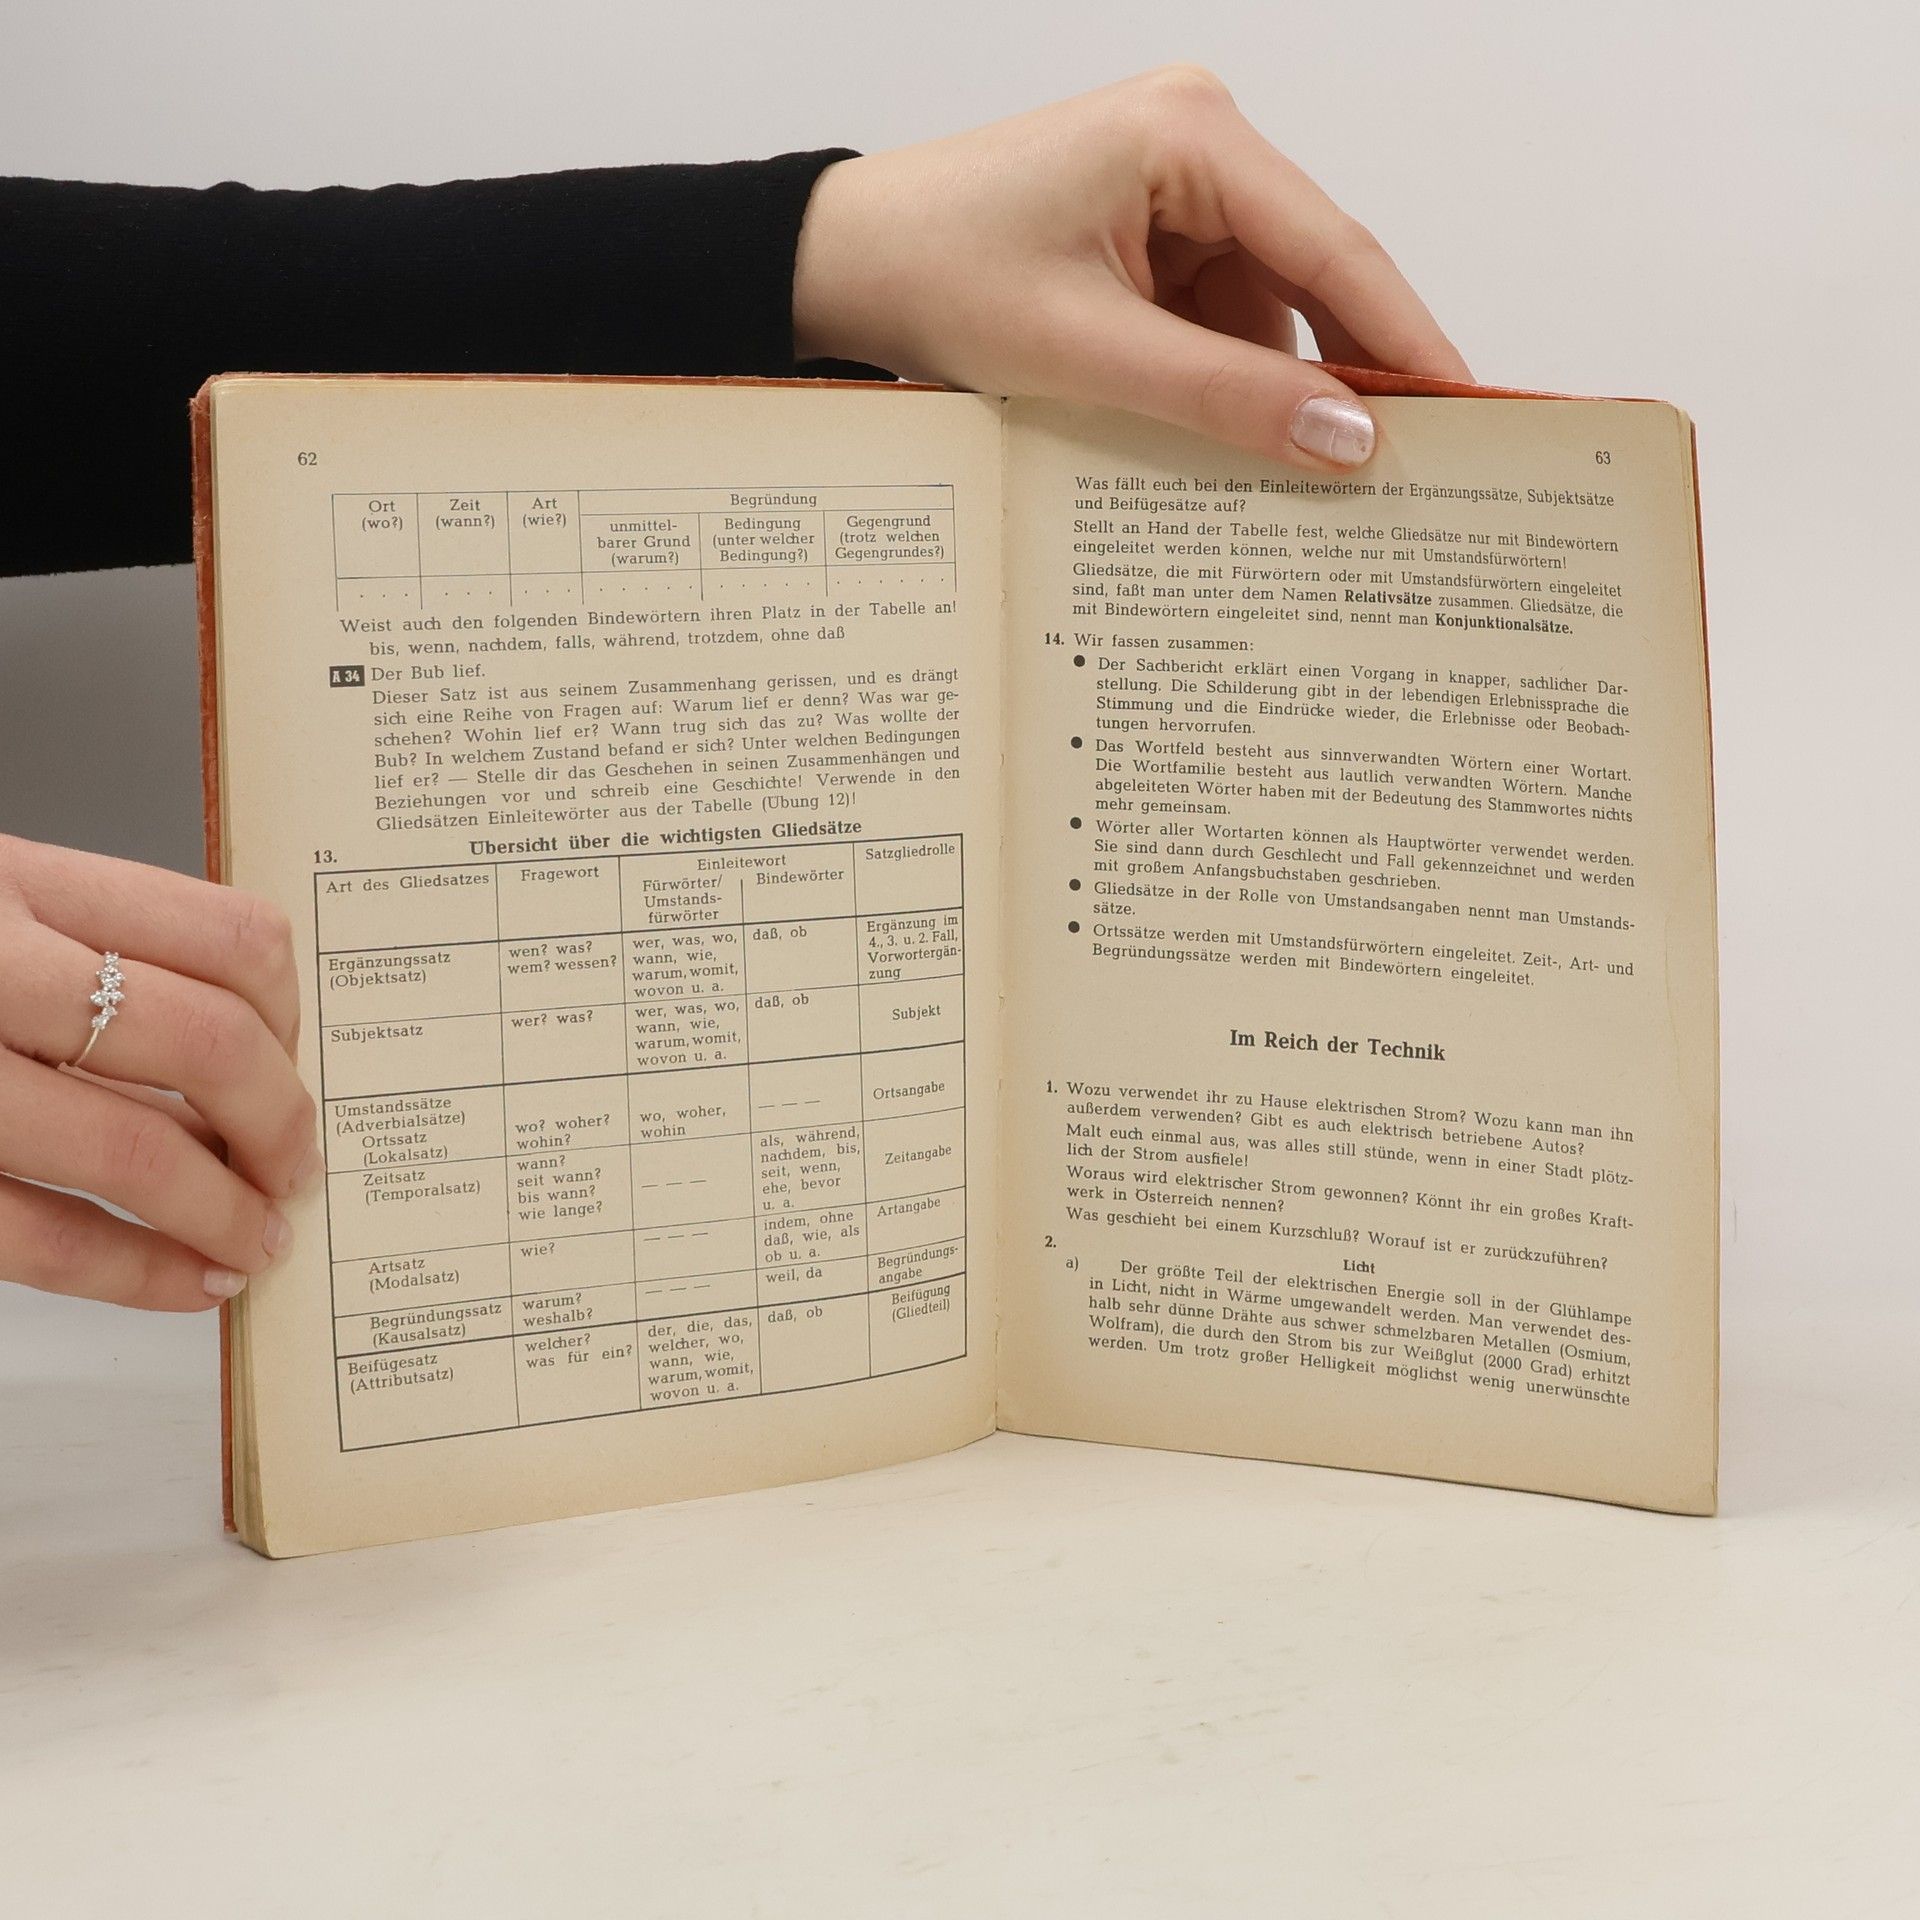 62
Ort Zeit Art Begründung
(wo?) (wann?) (wie?)
unmittel- Bedingung Gegengrund
barer Grund (unter welcher (trotz welchen
(warum?) Bedingung?) Gegengrundes?)
. . . . . . . . . . . . . . . . . . . . . . . . . .
Weist auch den folgenden Bindewörtern ihren Platz in der Tabelle an!
bis, wenn, nachdem, falls, während, trotzdem, ohne daß
A 34 Der Bub lief.
Dieser Satz ist aus seinem Zusammenhang gerissen, und es drängt
sich eine Reihe von Fragen auf: Warum lief er denn? Was war ge-
schehen? Wohin lief er? Wann trug sich das zu? Was wollte der
Bub? In welchem Zustand befand er sich? Unter welchen Bedingungen
lief er? — Stelle dir das Geschehen in seinen Zusammenhängen und
Beziehungen vor und schreib eine Geschichte! Verwende in den
Gliedsätzen Einleitewörter aus der Tabelle (Übung 12)!
13. Übersicht über die wichtigsten Gliedsätze
Art des Gliedsatzes Fragewort Einleitewort Satzgliedrolle
Fürwörter/ Bindewörter
Umstands-
fürwörter
Ergänzungssatz wen? was? wer, was, wo, daß, ob Ergänzung im
(Objektsatz) wem? wessen? wann, wie, 4., 3. u. 2. Fall,
warum, womit, Vorwortergän-
wovon u. a. zung
Subjektsatz wer? was? wer, was, wo, daß, ob Subjekt
wann, wie,
warum, womit,
wovon u. a.
Umstandssätze
(Adverbialsätze)
Ortssatz wo? woher? wo, woher, — — — Ortsangabe
(Lokalsatz) wohin? wohin
Zeitsatz wann? — — — als, während, Zeitangabe
(Temporalsatz) seit wann? nachdem, bis,
bis wann? seit, wenn,
wie lange? ehe, bevor
u. a.
Artsatz wie? — — — indem, ohne Artangabe
(Modalsatz) daß, wie, als
ob u. a.
Begründungssatz warum? — — — weil, da Begründungs-
(Kausalsatz) weshalb? angabe
Beifügesatz welcher? der, die, das, daß, ob Beifügung
(Attributsatz) was für ein? welcher, wo, (Gliedteil)
wann, wie,
warum, womit,
wovon u. a.
63
Was fällt euch bei den Einleitewörtern der Ergänzungssätze, Subjektsätze
und Beifügesätze auf?
Stellt an Hand der Tabelle fest, welche Gliedsätze nur mit Bindewörtern
eingeleitet werden können, welche nur mit Umstandsfürwörtern!
Gliedsätze, die mit Fürwörtern oder mit Umstandsfürwörtern eingeleitet
sind, faßt man unter dem Namen Relativsätze zusammen. Gliedsätze, die
mit Bindewörtern eingeleitet sind, nennt man Konjunktionalsätze.
14. Wir fassen zusammen:
● Der Sachbericht erklärt einen Vorgang in knapper, sachlicher Dar-
stellung. Die Schilderung gibt in der lebendigen Erlebnissprache die
Stimmung und die Eindrücke wieder, die Erlebnisse oder Beobach-
tungen hervorrufen.
● Das Wortfeld besteht aus sinnverwandten Wörtern einer Wortart.
Die Wortfamilie besteht aus lautlich verwandten Wörtern. Manche
abgeleiteten Wörter haben mit der Bedeutung des Stammwortes nichts
mehr gemeinsam.
● Wörter aller Wortarten können als Hauptwörter verwendet werden.
Sie sind dann durch Geschlecht und Fall gekennzeichnet und werden
mit großem Anfangsbuchstaben geschrieben.
● Gliedsätze in der Rolle von Umstandsangaben nennt man Umstands-
sätze.
● Ortssätze werden mit Umstandsfürwörtern eingeleitet. Zeit-, Art- und
Begründungssätze werden mit Bindewörtern eingeleitet.
Im Reich der Technik
1. Wozu verwendet ihr zu Hause elektrischen Strom? Wozu kann man ihn
außerdem verwenden? Gibt es auch elektrisch betriebene Autos?
Malt euch einmal aus, was alles still stünde, wenn in einer Stadt plötz-
lich der Strom ausfiele!
Woraus wird elektrischer Strom gewonnen? Könnt ihr ein großes Kraft-
werk in Österreich nennen?
Was geschieht bei einem Kurzschluß? Worauf ist er zurückzuführen?
2. Licht
a) Der größte Teil der elektrischen Energie soll in der Glühlampe
in Licht, nicht in Wärme umgewandelt werden. Man verwendet des-
halb sehr dünne Drähte aus schwer schmelzbaren Metallen (Osmium,
Wolfram), die durch den Strom bis zur Weißglut (2000 Grad) erhitzt
werden. Um trotz großer Helligkeit möglichst wenig unerwünschte